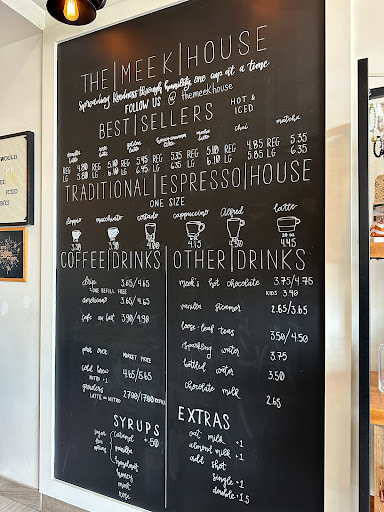 THE|MEEK|HOUSE
Spreading kindness through humility one cup at a time
FOLLOW US @ themeekhouse
BEST|SELLERS HOT & ICED
vanilla latte chai matcha
REG 4.80 REG 5.45 REG 5.35 REG 5.10 REG 4.85 REG 5.35
LG 5.80 LG 6.10 LG 6.45 LG 6.35 LG 6.10 LG 5.85 LG 6.35
TRADITIONAL|ESPRESSO|HOUSE
ONE SIZE
doppio macchiato cortado cappuccino Alfred latte
10 oz
3.30 3.90 4.00 4.15 4.50 4.45
COFFEE|DRINKS
drip 3.65/4.65
ONE REFILL FREE
americano 3.65/4.65
cafe au lait 3.90/4.90
pour over MARKET PRICE
cold brew 4.65/5.65
NITRO +1
growlers 2700/1700 REFILL
LATTE OR NITRO
SYRUPS
sugar free options caramel +.50
vanilla
hazelnut
honey
mint
rose
OTHER|DRINKS
meek's hot chocolate 3.75/4.75
KIDS 3.40
vanilla steamer 2.65/3.65
loose-leaf teas 3.50/4.50
sparkling water 3.75
bottled water 3.50
chocolate milk 2.65
EXTRAS
oat milk +1
almond milk +1
add shot
single +1
double +1.5
WOULD
MY
ICED